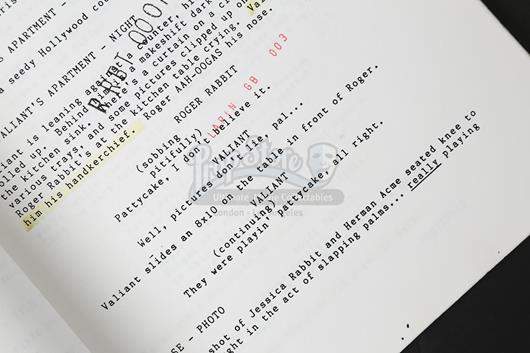 a seedy Hollywood cou
VALIANT'S APARTMENT - NIGHT
Valiant is leaning against a counter, hi
rolled up. Behind him is a makeshift dark
the kitchen sink. There's a curtain on a c
various trays, and some pictures clipped up o
Roger Rabbit's at the kitchen table crying. Va
him his handkerchief. Roger AAH-OOGAS his nose.
ROGER RABBIT
(sobbing
pitifully)
Pattycake, I don't believe it.
VALIANT
Well, pictures don't lie, pal...
Valiant slides an 8x10 on the table in front of Roger.
VALIANT
(continuing)
They were playin' pattycake, all right.
SE - PHOTO
shot of Jessica Rabbit and Herman Acme seated knee to
ght in the act of slapping palms... really playing
GB 003
PropStore
Ultimate Movie Collectables
London - Los Angeles